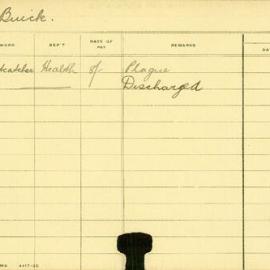 Buick.
WORK DEP'T RATE OF PAY REMARKS
catcher Health 8/- Plague
Discharged